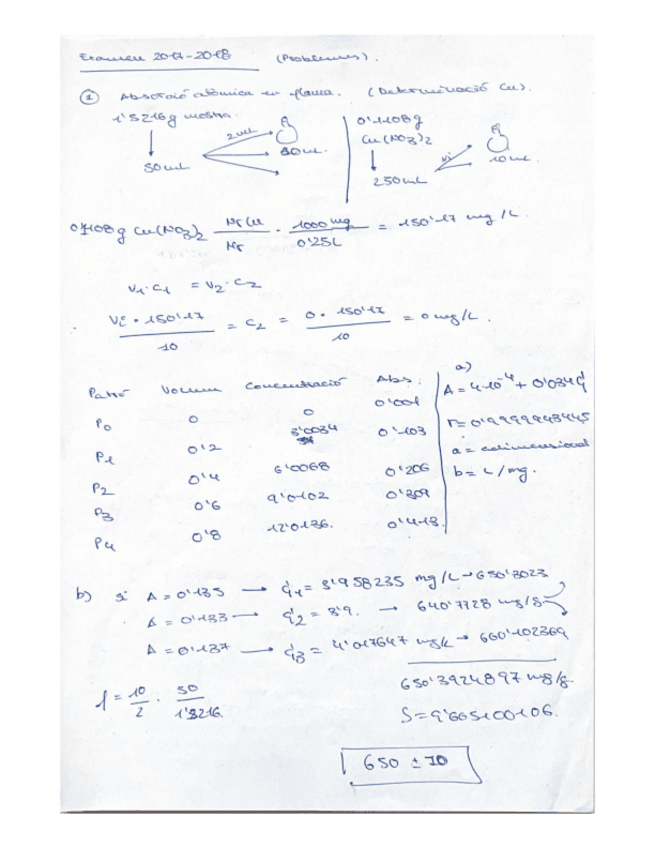 Examen 2017-2018 (Problemes).
① Absorció atòmica en flama. (Determinació Cu).
1'5216g mostra.
2 mL
50 mL
50 mL.
0'1108g
Cu(NO3)2
250 mL
Vi
10 mL.
0'1108g Cu(NO3)2 Mr Cu / Mr · 1000 mg / 0'25L = 150'17 mg/L.
V1·C1 = V2·C2
Vi · 150'17 / 10 = C2 = 0 · 150'17 / 10 = 0 mg/L.
Patró Volum Concentració Abs.
P0 0 0 0'001
P1 0'2 3'0034 0'103
P2 0'4 6'0068 0'206
P3 0'6 9'0102 0'309
P4 0'8 12'0136. 0'413.
a)
A = 4·10-4 + 0'034
r = 0'9999943445
a = adimensional
b = L/mg.
b) si A = 0'135 → 3'958235 mg/L → 650'3023
A = 0'133 → 3'9. → 640'7728 mg/g
A = 0'137 → 4'017647 mg/L → 660'102369
f = 10/2 · 50/1'5216.
650'3924897 mg/g.
S = 9'665100106.
650 ± 10